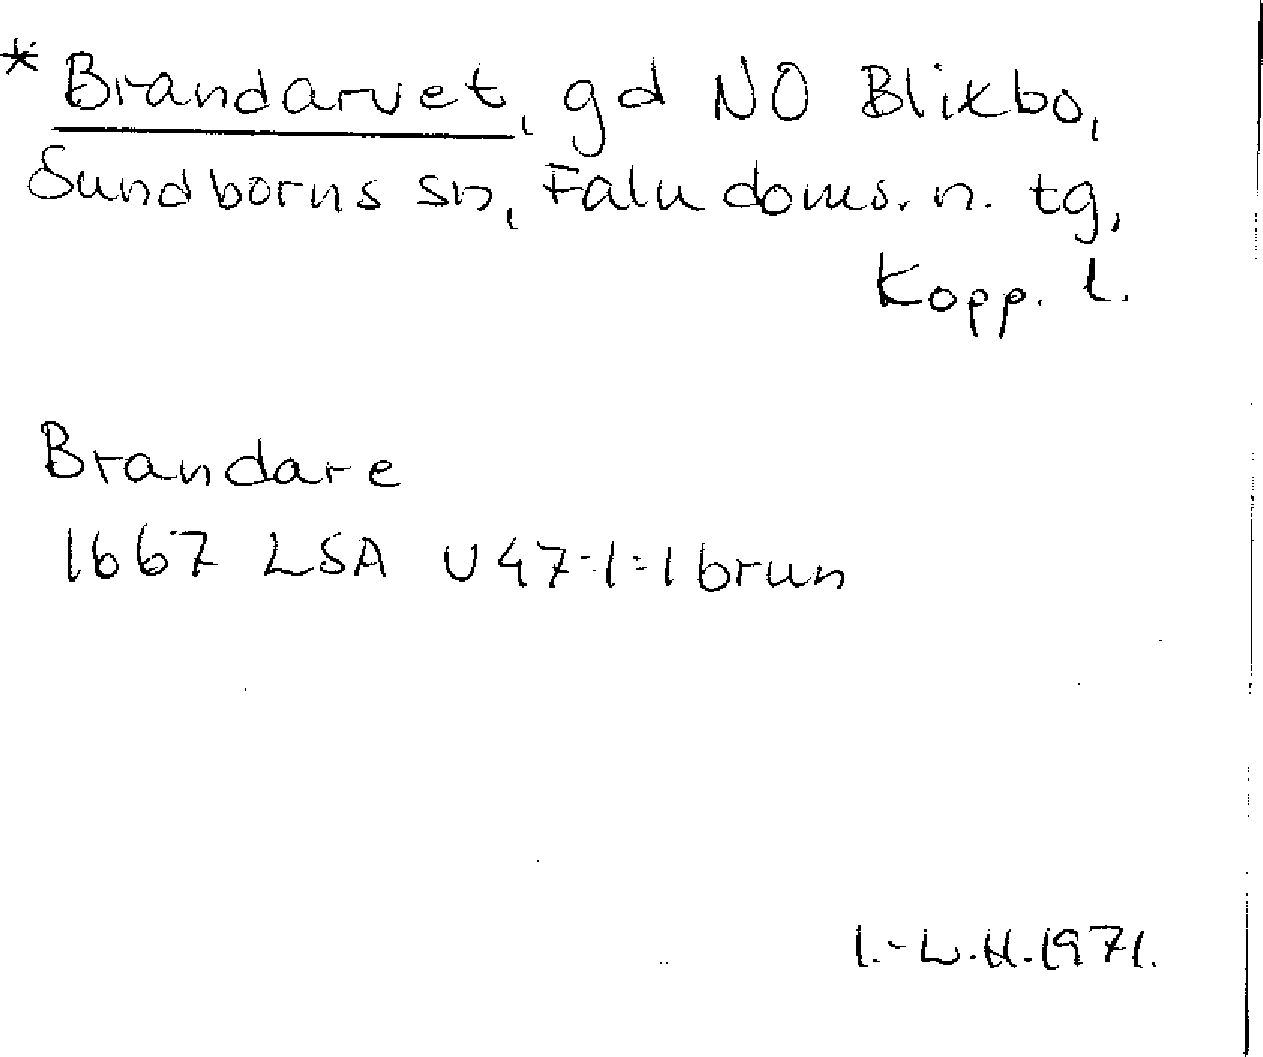 * Brandarvet, gd NO Blixbo,
Sundborns sn, Falu doms. n. tg,
Kopp. l.
Brandare
1667 LSA U47-1:1 brun
I.-L.H. 1971.